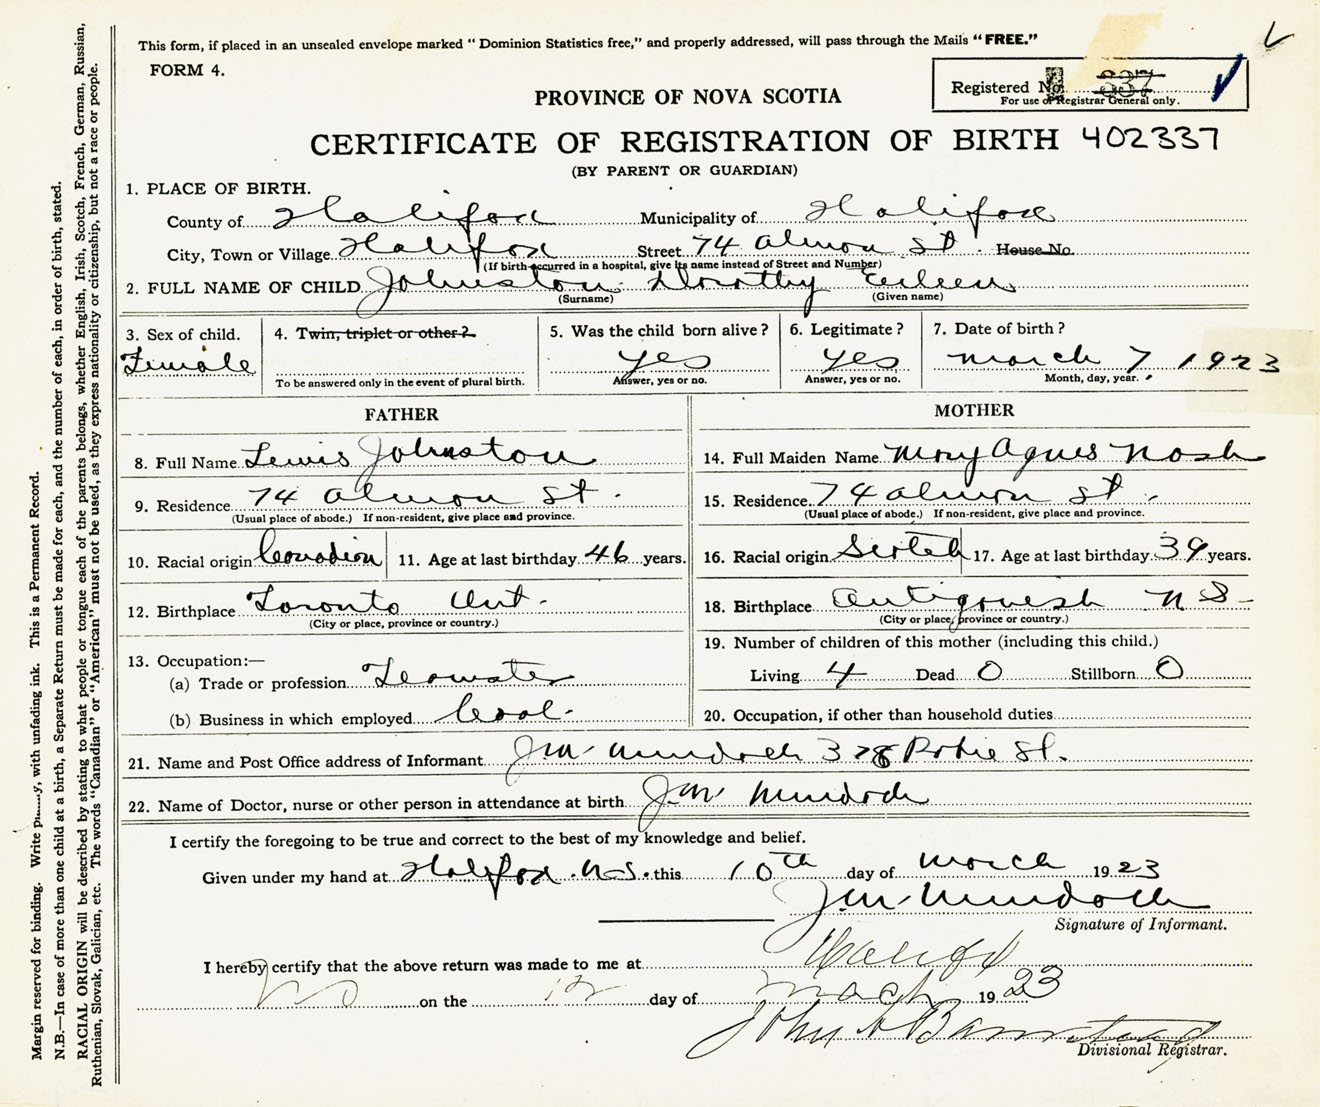 This form, if placed in an unsealed envelope marked "Dominion Statistics free," and properly addressed, will pass through the Mails "FREE."
FORM 4.
Registered No. 337
For use of Registrar General only.
PROVINCE OF NOVA SCOTIA
CERTIFICATE OF REGISTRATION OF BIRTH 402337
(BY PARENT OR GUARDIAN)
1. PLACE OF BIRTH.
County of Halifax Municipality of Halifax
City, Town or Village Halifax Street 74 Almon St. House No.
(If birth occurred in a hospital, give its name instead of Street and Number)
2. FULL NAME OF CHILD Johnston Dorothy Eileen
(Surname) (Given name)
3. Sex of child. 4. Twin, triplet or other? 5. Was the child born alive? 6. Legitimate? 7. Date of birth?
Female yes yes March 7, 1923
To be answered only in the event of plural birth. Answer, yes or no. Answer, yes or no. Month, day, year.
FATHER
8. Full Name Lewis Johnston
9. Residence 74 Almon St.
(Usual place of abode.) If non-resident, give place and province.
10. Racial origin Canadian 11. Age at last birthday 46 years.
12. Birthplace Toronto Ont.
(City or place, province or country.)
13. Occupation:—
(a) Trade or profession Teamster
(b) Business in which employed Coal.
MOTHER
14. Full Maiden Name Mary Agnes Nash
15. Residence 74 Almon St.
(Usual place of abode.) If non-resident, give place and province.
16. Racial origin Scotch 17. Age at last birthday 39 years.
18. Birthplace Antigonish N S
(City or place, province or country.)
19. Number of children of this mother (including this child.)
Living 4 Dead 0 Stillborn 0
20. Occupation, if other than household duties
21. Name and Post Office address of Informant J.W. Murdoch 378 Robie St.
22. Name of Doctor, nurse or other person in attendance at birth J.W. Murdoch
I certify the foregoing to be true and correct to the best of my knowledge and belief.
Given under my hand at Halifax N.S. this 10th day of March 1923
J.W. Murdoch
Signature of Informant.
I hereby certify that the above return was made to me at Halifax
NS on the 12 day of March 1923
John A Barnstead
Divisional Registrar.
Margin reserved for binding. Write p......y, with unfading ink. This is a Permanent Record.
N.B.—In case of more than one child at a birth, a Separate Return must be made for each, and the number of each, in order of birth, stated.
RACIAL ORIGIN will be described by stating to what people or tongue each of the parents belongs, whether English, Irish, Scotch, French, German, Russian,
Ruthenian, Slovak, Galician, etc. The words "Canadian" or "American" must not be used, as they express nationality or citizenship, but not a race or people.